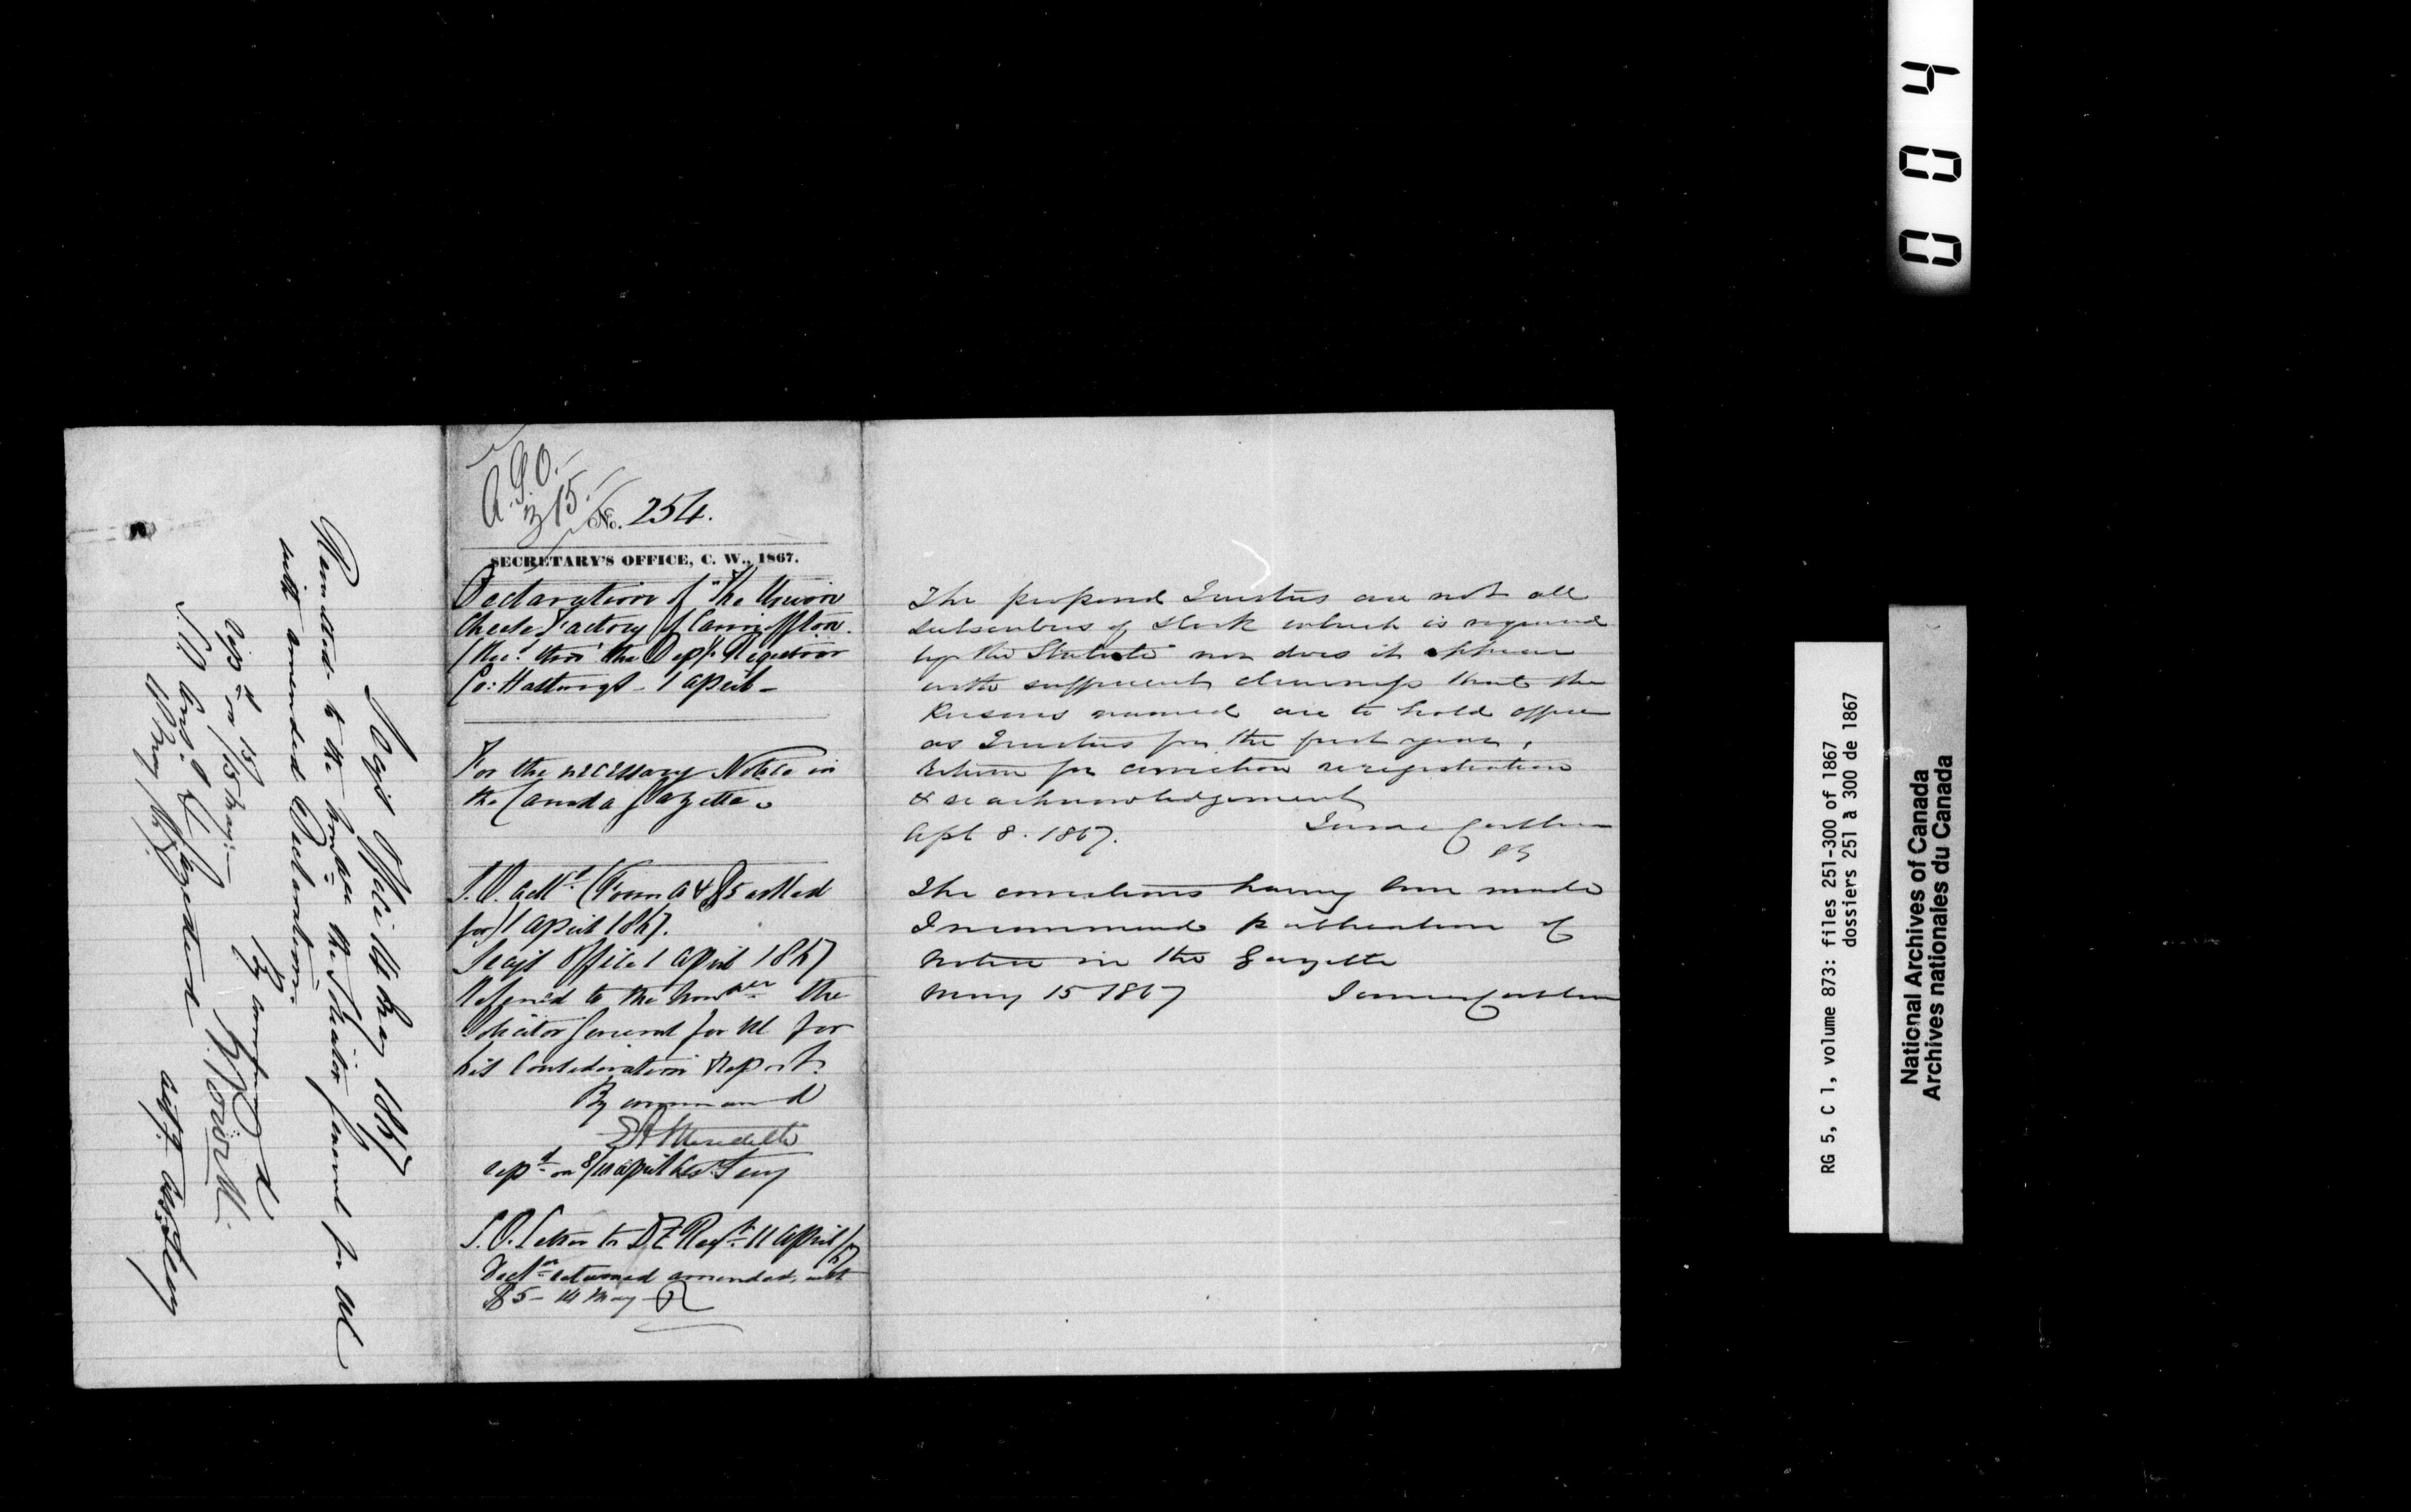 A.S.O.
15.
No. 254.
SECRETARY'S OFFICE, C. W., 1867.
Declaration of "The Union
Cheese Factory of Carrington.
the Depy. Registrar
Co: Hastings - 1 April -
For the necessary Notice in
the Canada Gazette.
S.O. ackd. (Form A & $5 asked
for) 1 April 1867.
Secy's Office 1 April 1867
Referred to the Honble the
Solicitor General for UC for
his Consideration & Report.
By command
E A Meredith
repd. on 8/10 April
S.O. Letter to D. Regr. 11 April/67
Decln. returned amended, with
$5 - 14 May -
The proposed Trustees are not all
subscribers of stock which is required
by the Statute nor does it appear
with sufficient clearness that the
Persons named are to hold office
as Trustees for the first year,
Return for correction reregistration
& reacknowledgement
Apl 8. 1867. James Cockburn
SG
The corrections having been made
I recommend publication of
Notice in the Gazette
May 15 1867 James Cockburn
Secy's Office 14 May 1867
Remitted to the Honble. the Solicitor General for UC
with amended Declaration.
By command
repd. on 15/15 May: -
E.A. Meredith
Asst. Secretary
0 0 4
RG 5, C 1, volume 873: files 251-300 of 1867
dossiers 251 à 300 de 1867
National Archives of Canada
Archives nationales du Canada